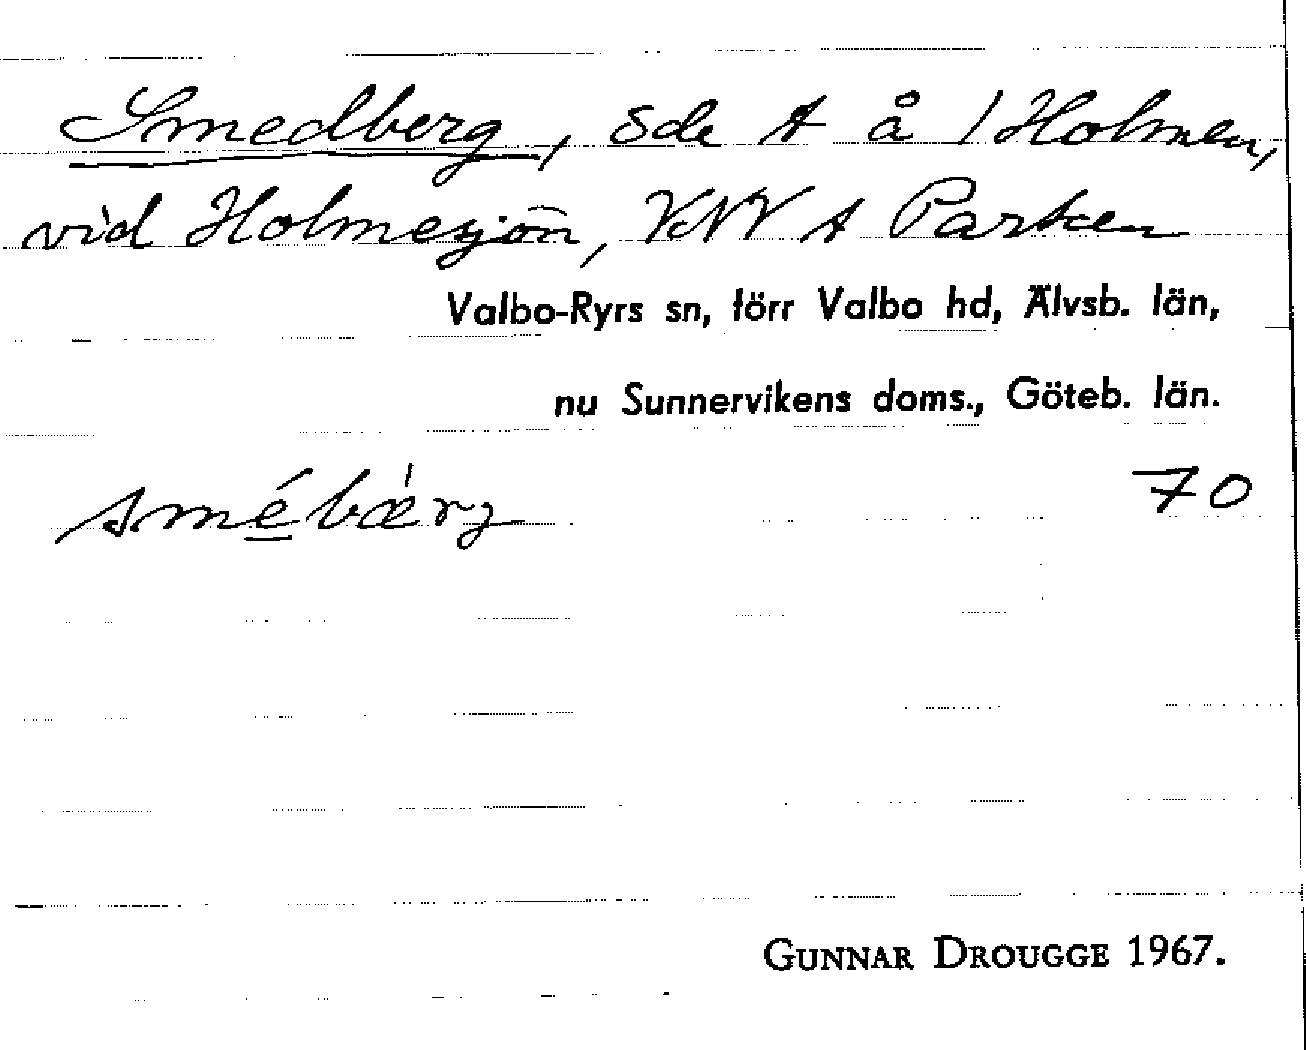 Smedberg, sde t å 1 Holmen,
vid Holmesjön, VNV t Parken
Valbo-Ryrs sn, förr Valbo hd, Älvsb. län,
nu Sunnervikens doms., Göteb. län.
smébærg 70
GUNNAR DROUGGE 1967.